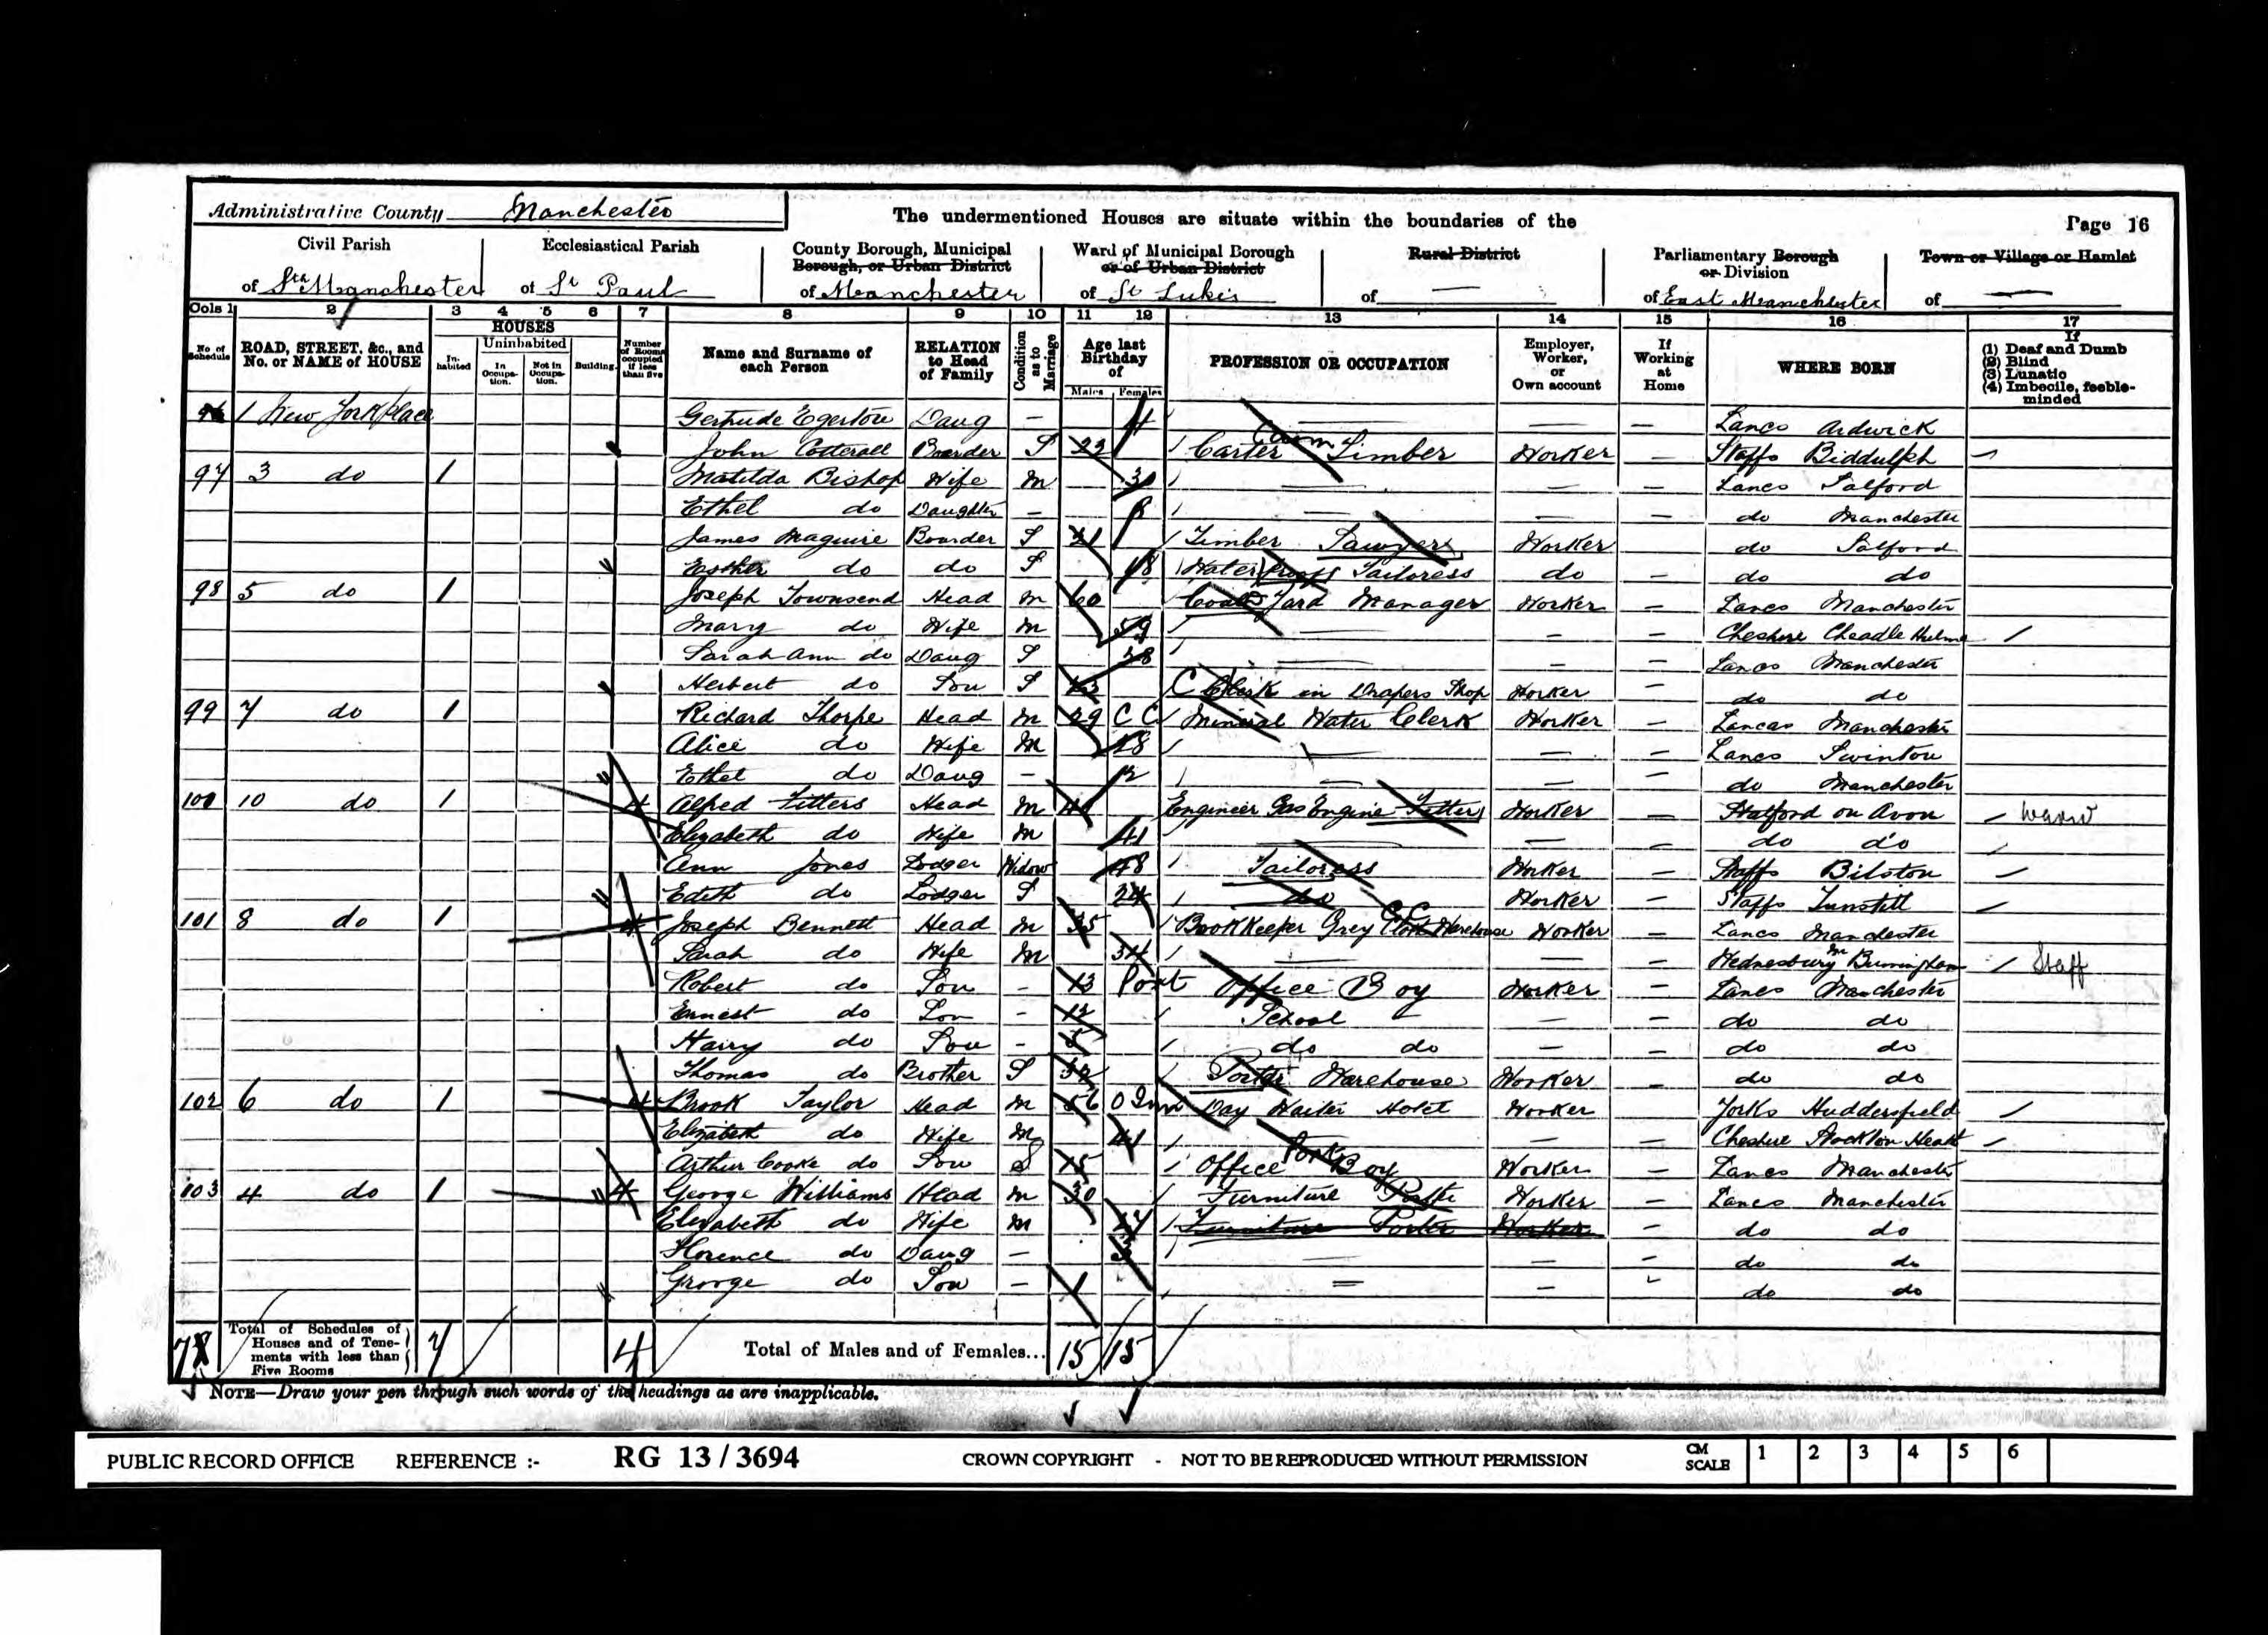 Administrative County Manchester
The undermentioned Houses are situate within the boundaries of the
Page 16
Civil Parish of Sth Manchester
Ecclesiastical Parish of St Paul
County Borough, Municipal Borough, or Urban District of Manchester
Ward of Municipal Borough or of Urban District of St Luke's
Rural District of —
Parliamentary Borough or Division of East Manchester
Town or Village or Hamlet of —
Cols 1 2 3 4 5 6 7 8 9 10 11 12 13 14 15 16 17
No of Schedule
ROAD, STREET, &c., and No. or NAME of HOUSE
HOUSES
Inhabited
Uninhabited
In Occupation.
Not in Occupation.
Building.
Number of Rooms occupied if less than five
Name and Surname of each Person
RELATION to Head of Family
Condition as to Marriage
Age last Birthday of
Males Females
PROFESSION OR OCCUPATION
Employer, Worker, or Own account
If Working at Home
WHERE BORN
If (1) Deaf and Dumb (2) Blind (3) Lunatic (4) Imbecile, feeble-minded
96 1 New York Place Gertrude Egerton Daug — — — Lancs Ardwick
John Cotterall Boarder S 22 Carter Timber Worker — Staffs Biddulph
97 3 do 1 Matilda Bishop Wife M 30 — — — Lancs Salford
Ethel do Daughter — 8 — — — do Manchester
James Maguire Boarder S 21 Timber Sawyer Worker do Salford
Esther do do S 18 Water Proof Tailoress do — do do
98 5 do 1 Joseph Townsend Head M 60 Coal Yard Manager Worker — Lancs Manchester
Mary do Wife M 59 — — — Cheshire Cheadle Hulme
Sarah Ann do Daug S 28 — — — Lancs Manchester
Herbert do Son S 23 C Clerk in Drapers Shop Worker — do do
99 7 do 1 Richard Thorpe Head M 29 CC Mineral Water Clerk Worker — Lancas Manchester
Alice do Wife M 28 — — — Lancs Swinton
Ethel do Daug — — — — do Manchester
100 10 do 1 4 Alfred Fitters Head M Engineer Gas Engine Fitter Worker — Statford on Avon Warw
Elizabeth do Wife M 41 — — — do do
Ann Jones Lodger Widow 48 Tailoress Worker — Staffs Bilston
Edith do Lodger S 24 do Worker — Staffs Tunstill
101 8 do 1 4 Joseph Bennett Head M 35 BookKeeper Grey Cloth Warehouse CC Worker — Lancs Manchester
Sarah do Wife M 34 — — — Wednesbury Nr Birmingham Staff
Robert do Son - 13 Port Office Boy Worker — Lancs Manchester
Ernest do Son - 12 School — — do do
Harry do Son - 5 do do — — do do
Thomas do Brother S 32 Porter Warehouse Worker — do do
102 6 do 1 4 Brook Taylor Head M 56 O Inn Day Waiter Hotel Worker Yorks Huddersfield
Elizabeth do Wife M 41 — — — Cheshire Stockton Heath
Arthur Cooke do Son S 15 Office Boy Pork Worker — Lancs Manchester
103 4 do 1 4 George Williams Head M 30 Furniture Porter Worker — Lancs Manchester
Elizabeth do Wife M 27 Furniture Porter Worker — do do
Florence do Daug — 3 — — — do do
George do Son — 1 — — do do
78 Total of Schedules of Houses and of Tenements with less than Five Rooms 7 4 Total of Males and of Females... 15 15
NOTE—Draw your pen through such words of the headings as are inapplicable.
PUBLIC RECORD OFFICE REFERENCE :- RG 13 / 3694 CROWN COPYRIGHT - NOT TO BE REPRODUCED WITHOUT PERMISSION CM SCALE 1 2 3 4 5 6